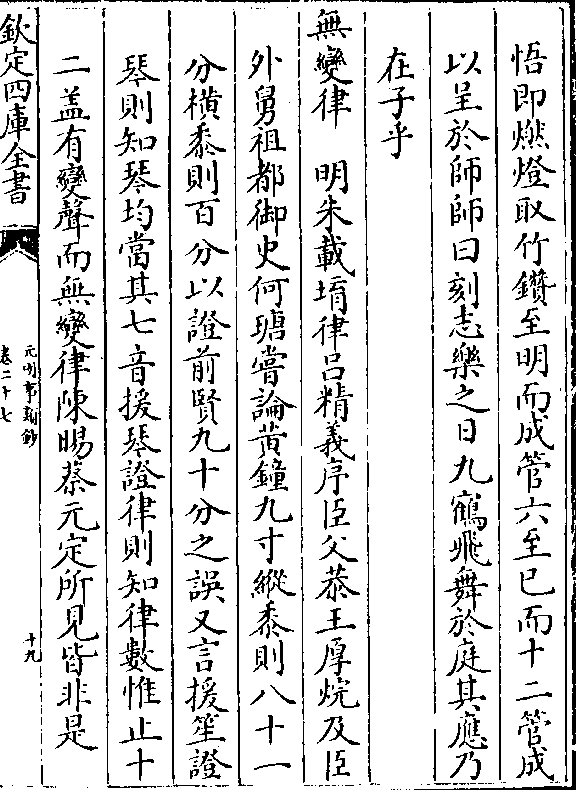 悟即燃燈取竹鑽至明而成管六至巳而十二管成
以呈於師師曰刻志樂之日九鶴飛舞於庭其應乃
在子乎
無變律　明朱載堉律吕精義序臣父恭王厚烷及臣
外舅祖都御史何瑭嘗論黄鐘九寸縱黍則八十一
分横黍則百分以證前賢九十分之誤又言援笙證
琴則知琴均當其七音援琴證律則知律數惟止十
二葢有變聲而無變律陳暘蔡元定所見皆非是
欽定四庫全書
元明事類鈔
卷二十七
十九